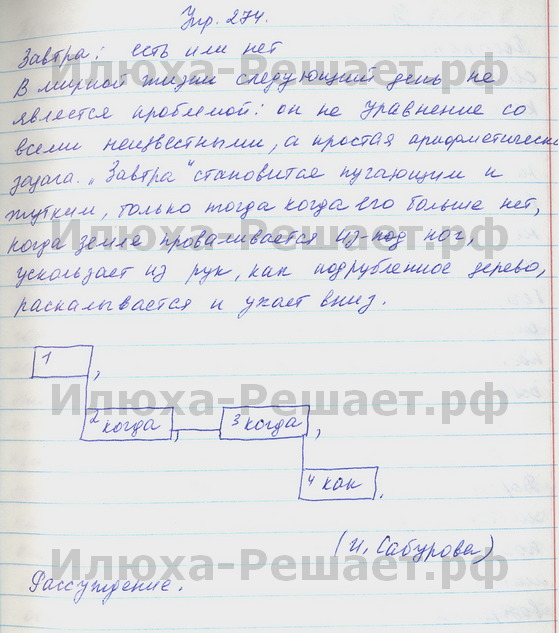 Упр. 274.
Завтра: есть или нет
В мирной жизни следующий день не
является проблемой: он не уравнение со
всеми неизвестными, а простая арифметическ
задача. „Завтра" становится пугающим и
жутким, только тогда когда его больше нет,
когда земле проваливается из-под ног,
ускользает из рук, как подрубленное дерево,
раскалывается и ухает вниз.
1 ,
2 когда , 3 когда ,
4 как .
(И. Сабурова)
Рассуждение.
Илюха-Решает.рф
Илюха-Решает.рф
Илюха-Решает.рф
Илюха-Решает.рф
Илюха-Решает.рф